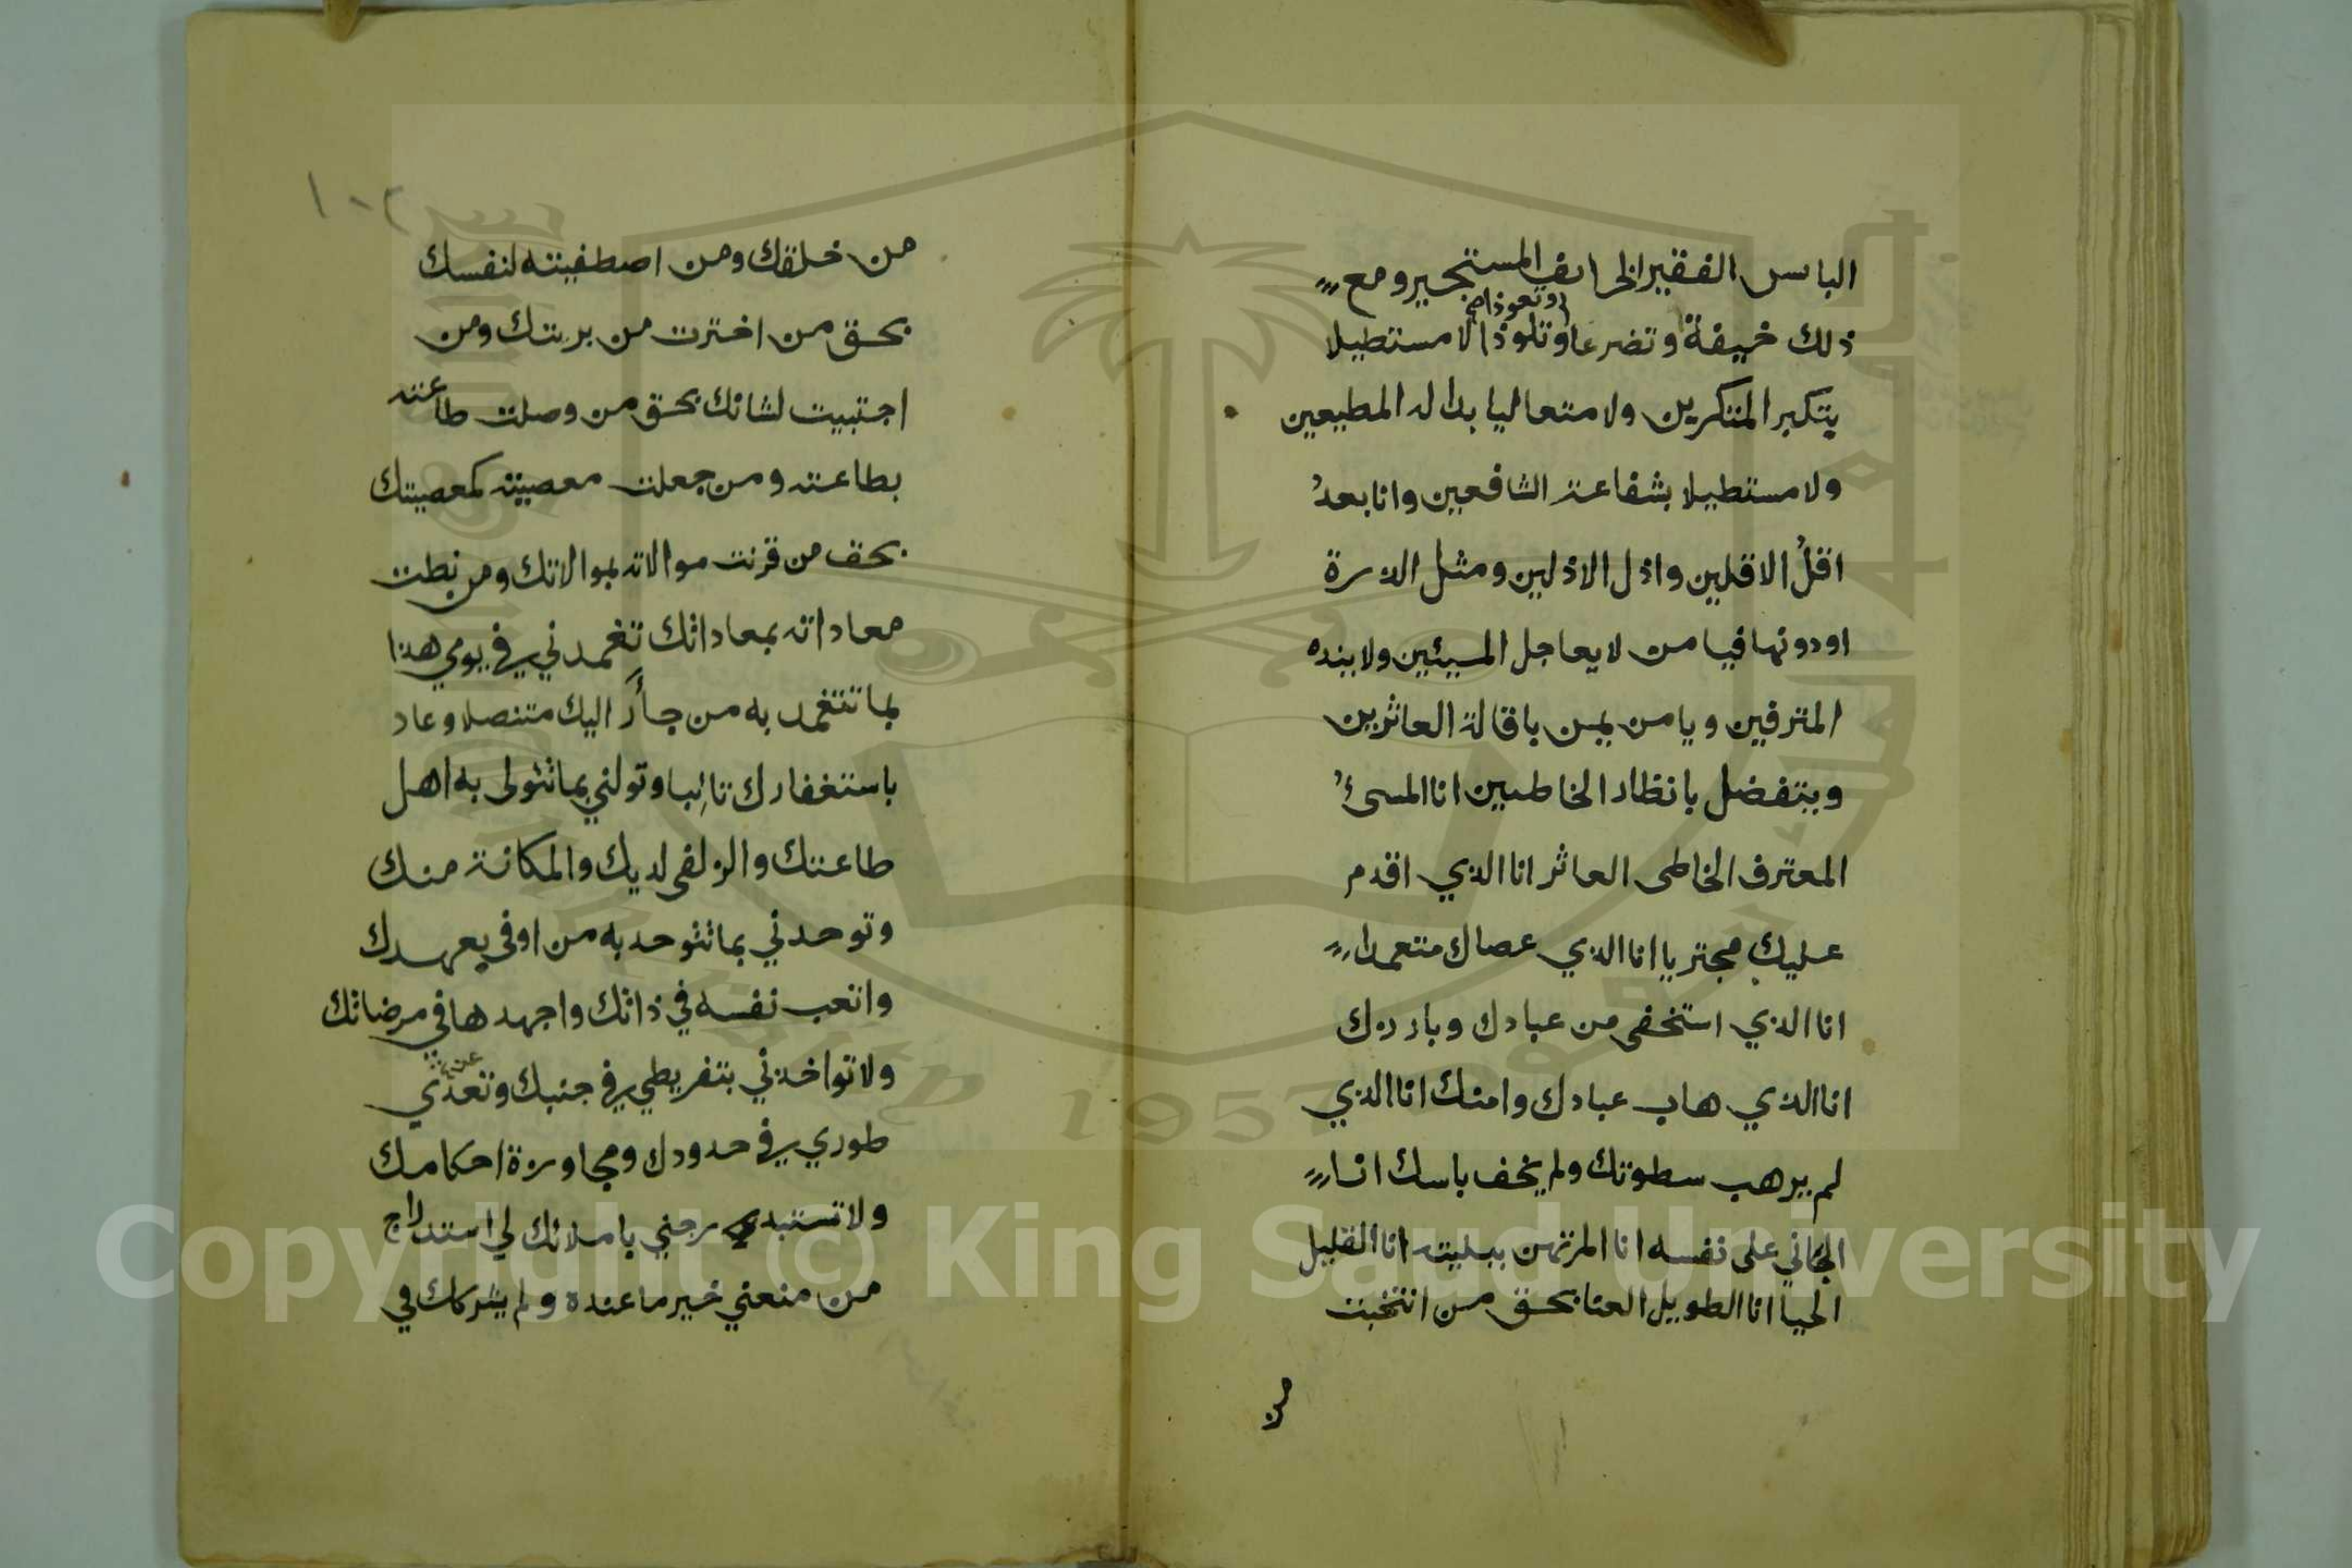 البايس الفقير الخايف المستجير ومع
وتعوذا صح
ذلك خيفة وتضرعا وتلوذا لا مستطيلا
يتكبر المتكبرين ولا متعاليا بدالة المطيعين
ولا مستطيلا بشفاعة الشافعين وانا بعدُ
اقلُ الاقلين واذل الاذلين ومثل الذرة
او دونها فيا من لا يعاجل المسيئين ولا ينده
المترفين ويا من يمن باقالة العاثرين
ويتفضل بانظار الخاطيين انا المسئُ
المعترف الخاطى العاثر انا الذي اقدم
عليك مجتريا انا الذي عصاك متعمدا
انا الذي استخفى من عبادك وبارزك
انا الذي هاب عبادك وامنك انا الذي
لم يرهب سطوتك ولم يخف باسك انا
الجاني على نفسه انا المرتهن ببليته انا القليل
الحيا انا الطويل العنا بحق من انتخبت
من
١٠٢
من خلقك ومن اصطفيته لنفسك
بحق من اخترت من بريتك ومن
اجتبيت لشانك بحق من وصلت طاعته
بطاعته ومن جعلت معصيته كمعصيتك
بحق من قرنت موالاته بموالاتك ومن نطت
معاداته بمعاداتك تغمدني في يومي هذا
بما تتغمد به من جأر اليك متنصلا وعاد
باستغفارك تائبا وتولني بما تتولى به اهل
طاعتك والزلفى لديك والمكانة منك
وتوحدني بما تتوحد به من اوفى بعهدك
واتعب نفسه في ذاتك واجهدها في مرضاتك
ولا تواخذني بتفريطي في جنبك وتعدّي
طوري في حدودك ومجاوزة احكامك
ولا تستدرجني باملائك لي استدراج
من منعني خير ما عنده ولم يشركك في
Copyright © King Saud University
1957